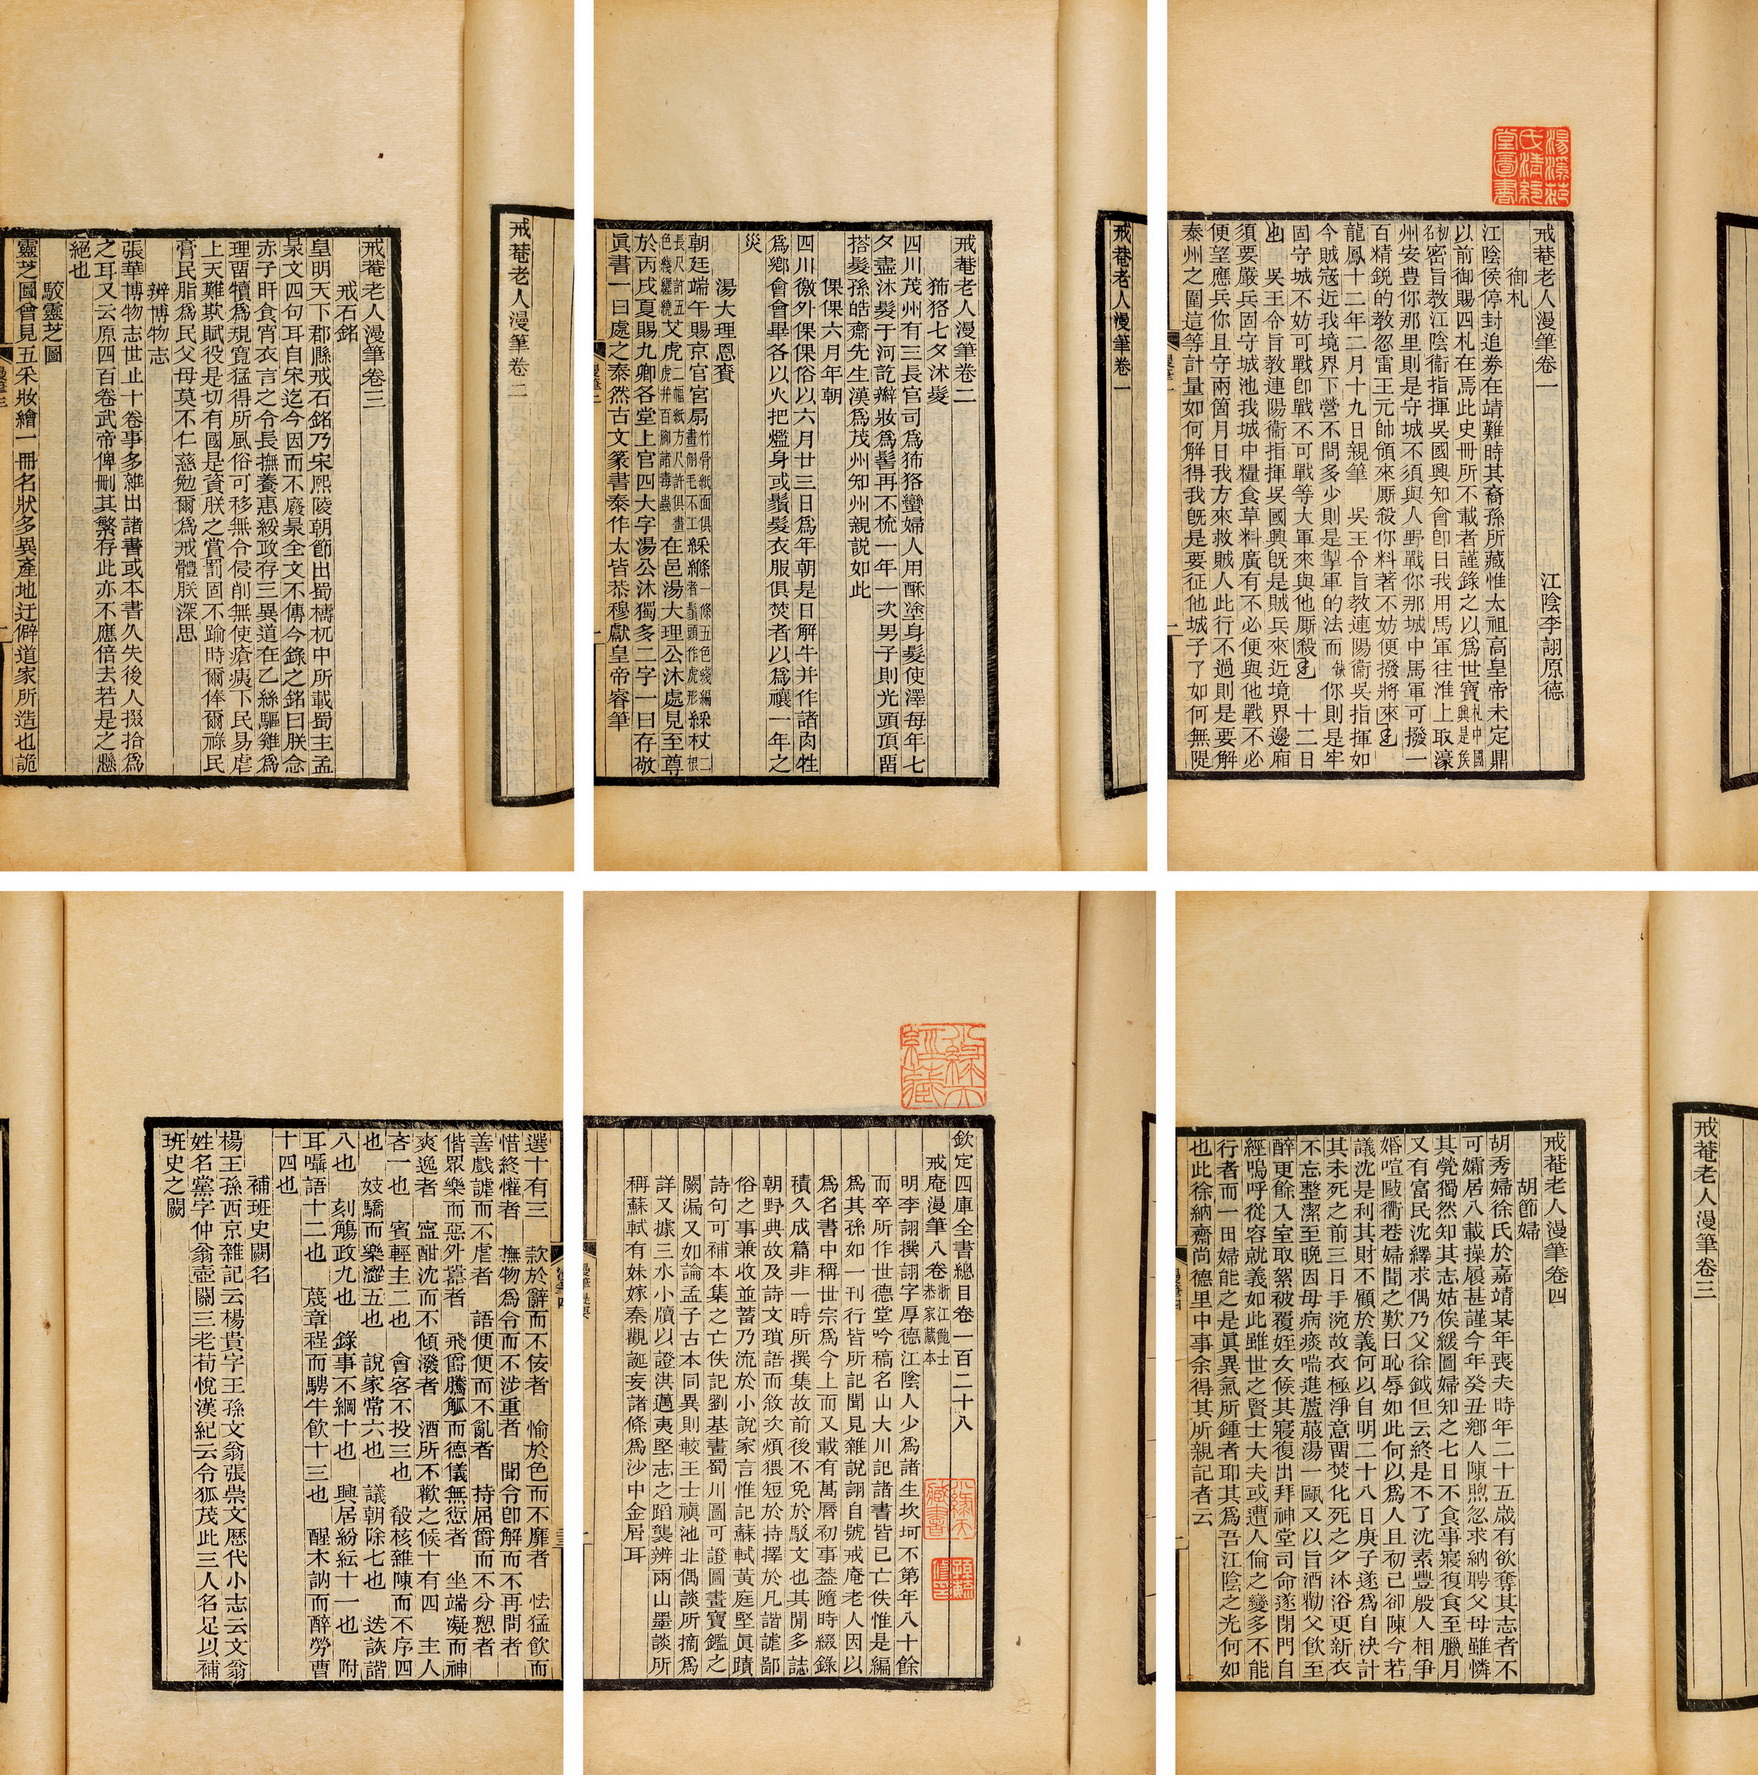 湯溪范氏淸絅堂圖書
戒菴老人漫筆卷一
江陰李詡原德
御札
江陰侯停封追劵在靖難時其裔孫所藏惟太祖高皇帝未定鼎
以前御賜四札在焉此史冊所不載者謹錄之以爲世寶札中國興是侯
初名密旨敎江陰衞指揮吳國興知會卽日我用馬軍往淮上取濠
州安豊你那里則是守城不須與人野戰你那城中馬軍可撥一
百精銳的敎忽雷王元帥領來厮殺你料著不妨便撥將來
龍鳳十二年二月十九日親筆 吳王令旨敎連陽衞吳指揮如
今賊寇近我境界下營不問多少則是掣軍的法而 你則是牢
固守城不妨可戰卽戰不可戰等大軍來與他厮殺 十二日
吳王令旨敎連陽衞指揮吳國興旣是賊兵來近境界邊廂
須要嚴兵固守城池我城中糧食草料廣有不必便與他戰不必
便望應兵你且守兩箇月日我方來救賊人此行不過則是要解
泰州之圍這等計量如何解得我旣是要征他城子了如何無隄
戒菴老人漫筆卷一
戒菴老人漫筆卷二
㹟狢七夕沐髮
四川茂州有三長官司爲㹟狢蠻婦人用酥塗身髮使澤每年七
夕盡沐髮于河訖辮妝爲髻再不梳一年一次男子則光頭頂畱
搭髮孫皓齋先生漢爲茂州知州親説如此
倮倮六月年朝
四川徼外倮倮俗以六月廿三日爲年朝是日解牛并作諸肉牲
爲鄉會會畢各以火把爁身或鬚髮衣服俱焚者以爲禳一年之
災
湯大理恩賚
朝廷端午賜京官宮扇竹骨紙面俱畫翎毛不工綵縧一條五色綫編綵杖二根
長尺許五色綫纏繞艾虎二幅紙方尺許俱畫虎并百脚諸毒蟲在邑湯大理公沐處見至尊
於丙戌夏賜九卿各堂上官四大字湯公沐獨多二字一曰存敬
眞書一曰處之泰然古文篆書泰作太皆恭穆獻皇帝睿筆
戒菴老人漫筆卷二
戒菴老人漫筆卷三
戒石銘
皇明天下郡縣戒石銘乃宋熙陵朝節出蜀檮杌中所載蜀主孟
泉文四句耳自宋迄今因而不廢泉全文不傳今錄之銘曰朕念
赤子旰食宵衣言之令長撫養惠綏政存三異道在乙絲驅雞爲
理畱犢爲規寬猛得所風俗可移無令侵削無使瘡痍下民易虐
上天難欺賦役是切有國是資朕之賞罰固不踰時爾俸爾祿民
膏民脂爲民父母莫不仁慈勉爾爲戒體朕深思
辨博物志
張華博物志世止十卷事多雜出諸書或本書久失後人掇拾爲
之耳又云原四百卷武帝俾刪其繁存此亦不應倍去若是之懸
絕也
駮靈芝圖
靈芝圖曾見五采妝繪一冊名狀多異產地迂僻道家所造也詭
戒菴老人漫筆卷三
戒菴老人漫筆卷四
胡節婦
胡秀婦徐氏於嘉靖某年喪夫時年二十五歲有欲奪其志者不
可孀居八載操履甚謹今年癸丑鄉人陳煦忽求納聘父母雖憐
其煢獨然知其志姑俟緩圖婦知之七日不食事寢復食至臘月
又有富民沈繹求偶乃父徐鉞但云終是不了沈素豐殷人相爭
婚喧毆衢巷婦聞之歎曰恥辱如此何以爲人且初已卻陳今若
議沈是利其財不顧於義何以自明二十八日庚子遂爲自決計
其未死之前三日手浣故衣極淨意畱焚化死之夕沐浴更新衣
不忘整潔至晩因母病痰喘進蘆菔湯一甌又以旨酒勸父飮至
醉更餘入室取絮被覆姪女候其寢復出拜神堂司命遂閉門自
經嗚呼從容就義如此雖世之賢士大夫或遭人倫之變多不能
行者而一田婦能之是眞異氣所鍾者耶其爲吾江陰之光何如
也此徐納齋尙德里中事余得其所親記者云
欽定四庫全書總目卷一百二十八
戒庵漫筆八卷浙江鮑士恭家藏本
明李詡撰詡字厚德江陰人少爲諸生坎坷不第年八十餘
而卒所作世德堂吟稿名山大川記諸書皆已亡佚惟是編
爲其孫如一刊行皆所記聞見雜說詡自號戒庵老人因以
爲名書中稱世宗爲今上而又載有萬曆初事葢隨時綴錄
積久成篇非一時所撰集故前後不免於駁文也其閒多誌
朝野典故及詩文瑣語而敘次煩猥短於持擇於凡諧謔鄙
俗之事兼收並蓄乃流於小說家言惟記蘇軾黃庭堅眞蹟
詩句可補本集之亡佚記劉基畫蜀川圖可證圖畫寶鑑之
闕漏又如論孟子古本同異則較王士禛池北偶談所摘爲
詳又據三水小牘以證洪邁夷堅志之蹈襲辨兩山墨談所
稱蘇軾有妹嫁秦觀誕妄諸條爲沙中金屑耳
選十有三 款於辭而不佞者 愉於色而不靡者 怯猛飮而
惜終懽者 撫物爲令而不涉重者 聞令卽解而不再問者
善戲謔而不虐者 語便便而不亂者 持屈爵而不分愬者
偕眾樂而惡外嚣者 飛爵騰觚而德儀無愆者 坐端凝而神
爽逸者 寍酣沈而不傾潑者 酒所不歡之候十有四 主人
吝一也 賓輕主二也 會客不投三也 殽核雜陳而不序四
也 妓驕而樂澀五也 說家常六也 議朝除七也 迭詼諧
八也 刻觴政九也 錄事不綱十也 興居紛紜十一也 附
耳囁語十二也 蔑章程而騁牛飮十三也 醒木訥而醉勞曹
十四也
補班史闕名
楊王孫西京雜記云楊貴字王孫文翁張崇文歷代小志云文翁
姓名黨字仲翁壺關三老荀悅漢紀云令狐茂此三人名足以補
班史之闕